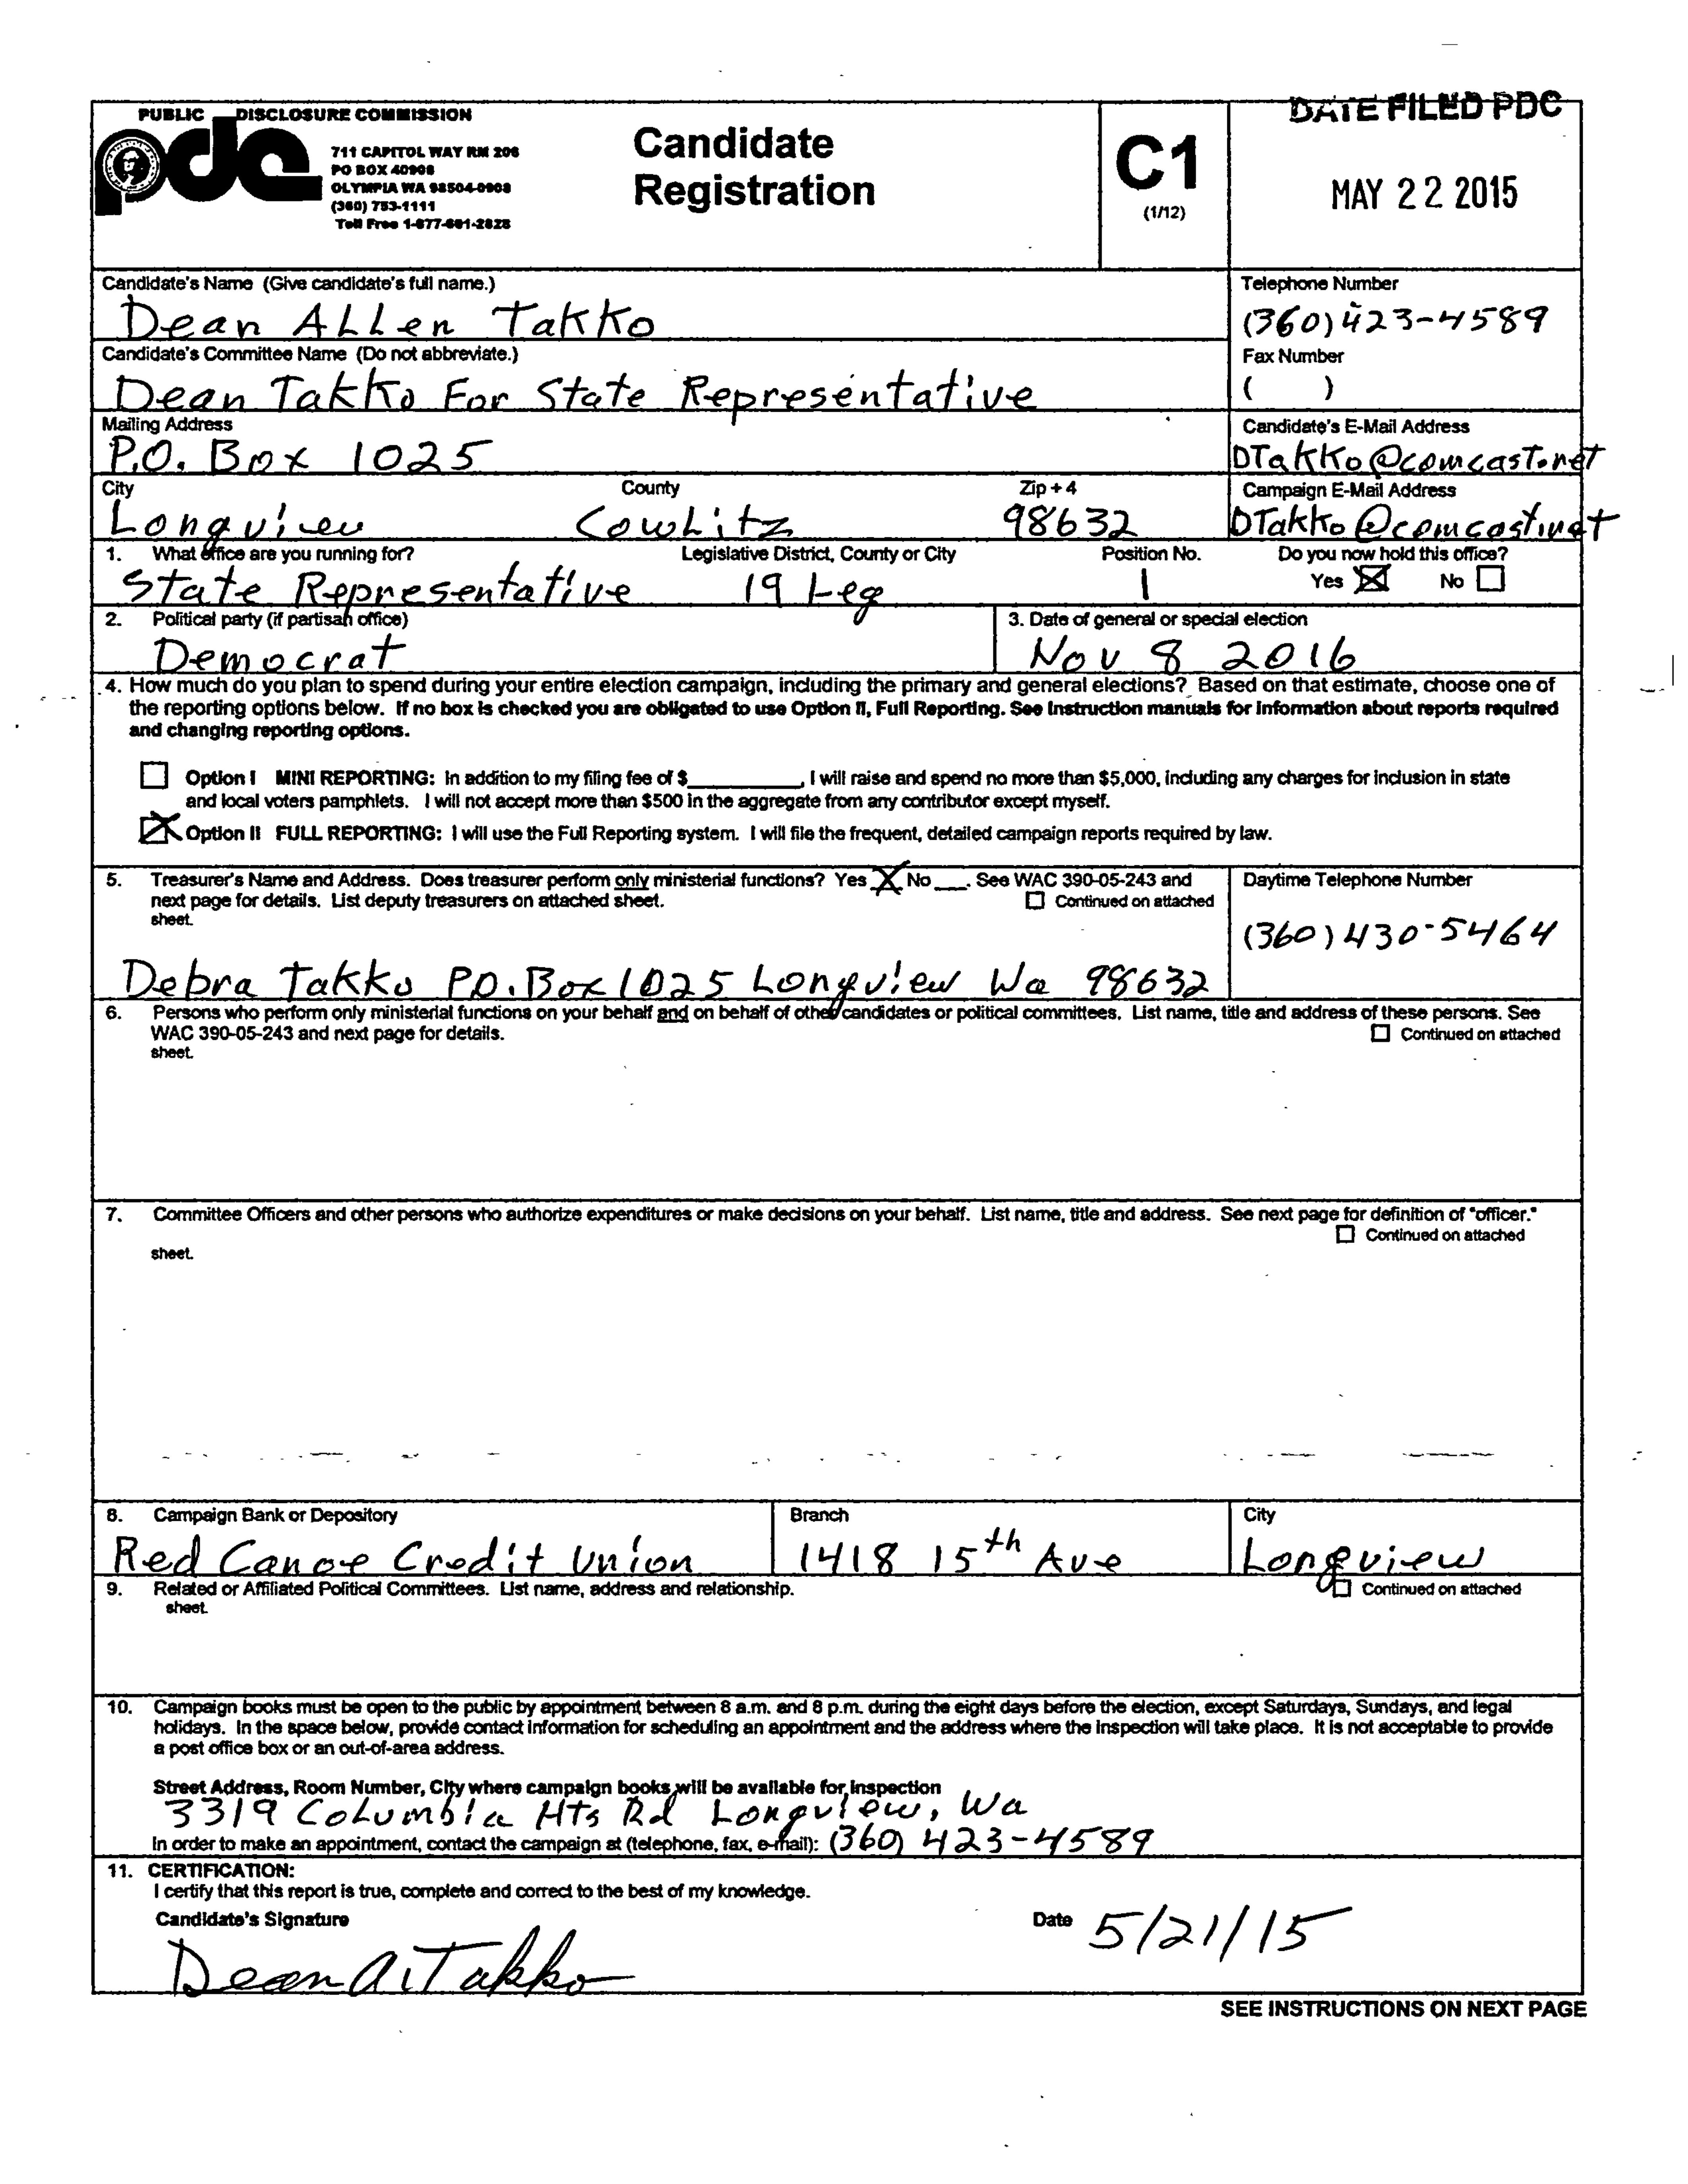 PUBLIC DISCLOSURE COMMISSION
pdc
711 CAPITOL WAY RM 206
PO BOX 40908
OLYMPIA WA 98504-0908
(360) 753-1111
Toll Free 1-877-601-2828
Candidate
Registration
C1
(1/12)
DATE FILED PDC
MAY 22 2015
Candidate's Name (Give candidate's full name.)
Dean ALLen Takko
Telephone Number
(360) 423-4589
Candidate's Committee Name (Do not abbreviate.)
Dean Takko For State Representative
Fax Number
( )
Mailing Address
P.O. Box 1025
Candidate's E-Mail Address
DTakko@comcast.net
City County Zip + 4
Longview Cowlitz 98632
Campaign E-Mail Address
DTakko@comcast.net
1. What office are you running for? Legislative District, County or City Position No. Do you now hold this office?
State Representative 19 Leg 1 Yes ☒ No ☐
2. Political party (if partisan office)
Democrat
3. Date of general or special election
Nov 8 2016
4. How much do you plan to spend during your entire election campaign, including the primary and general elections? Based on that estimate, choose one of
the reporting options below. If no box is checked you are obligated to use Option II, Full Reporting. See instruction manuals for information about reports required
and changing reporting options.
☐ Option I MINI REPORTING: In addition to my filing fee of $__________, I will raise and spend no more than $5,000, including any charges for inclusion in state
and local voters pamphlets. I will not accept more than $500 in the aggregate from any contributor except myself.
☒ Option II FULL REPORTING: I will use the Full Reporting system. I will file the frequent, detailed campaign reports required by law.
5. Treasurer's Name and Address. Does treasurer perform only ministerial functions? Yes X No ___. See WAC 390-05-243 and
next page for details. List deputy treasurers on attached sheet. ☐ Continued on attached
sheet.
Debra Takko P.O. Box 1025 Longview Wa 98632
Daytime Telephone Number
(360) 430-5464
6. Persons who perform only ministerial functions on your behalf and on behalf of other candidates or political committees. List name, title and address of these persons. See
WAC 390-05-243 and next page for details. ☐ Continued on attached
sheet.
7. Committee Officers and other persons who authorize expenditures or make decisions on your behalf. List name, title and address. See next page for definition of "officer."
☐ Continued on attached
sheet.
8. Campaign Bank or Depository Branch City
Red Canoe Credit Union 1418 15th Ave Longview
9. Related or Affiliated Political Committees. List name, address and relationship. ☐ Continued on attached
sheet.
10. Campaign books must be open to the public by appointment between 8 a.m. and 8 p.m. during the eight days before the election, except Saturdays, Sundays, and legal
holidays. In the space below, provide contact information for scheduling an appointment and the address where the inspection will take place. It is not acceptable to provide
a post office box or an out-of-area address.
Street Address, Room Number, City where campaign books will be available for inspection
3319 Columbia Hts Rd Longview, Wa
In order to make an appointment, contact the campaign at (telephone, fax, e-mail): (360) 423-4589
11. CERTIFICATION:
I certify that this report is true, complete and correct to the best of my knowledge.
Candidate's Signature Date 5/21/15
Dean A. Takko
SEE INSTRUCTIONS ON NEXT PAGE